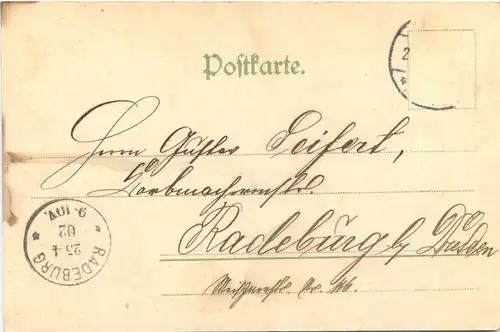 Postkarte.
2
Herrn Gustav Seifert,
Korbmachermstr.
Radeburg b/ Dresden
No.
RADEBURG
25 4
02
9-10V.